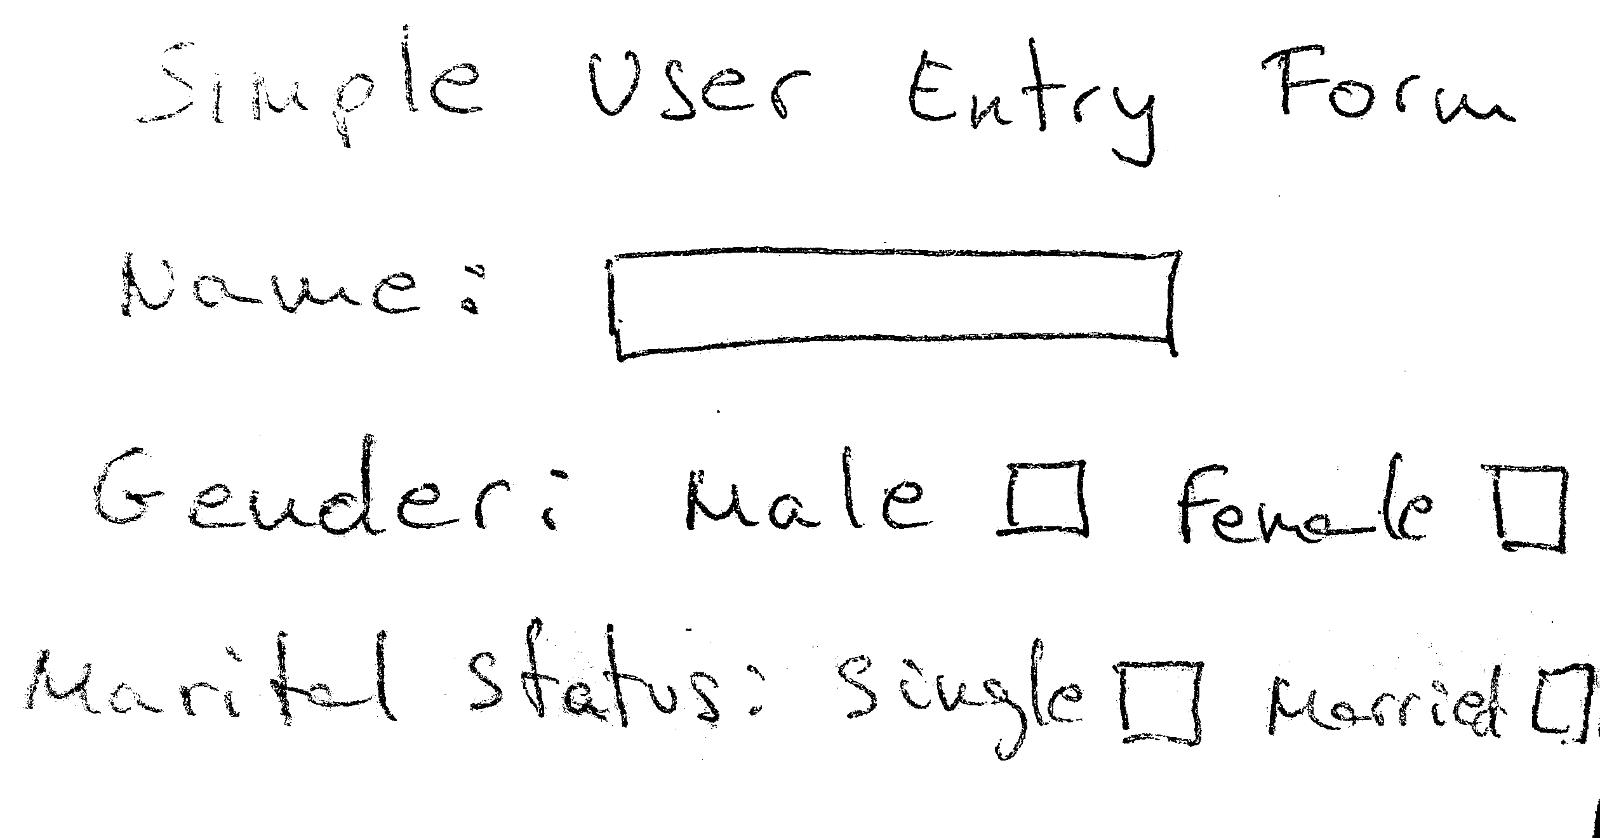 Simple User Entry Form
Name:
Gender: Male Female
Marital Status: Single Married